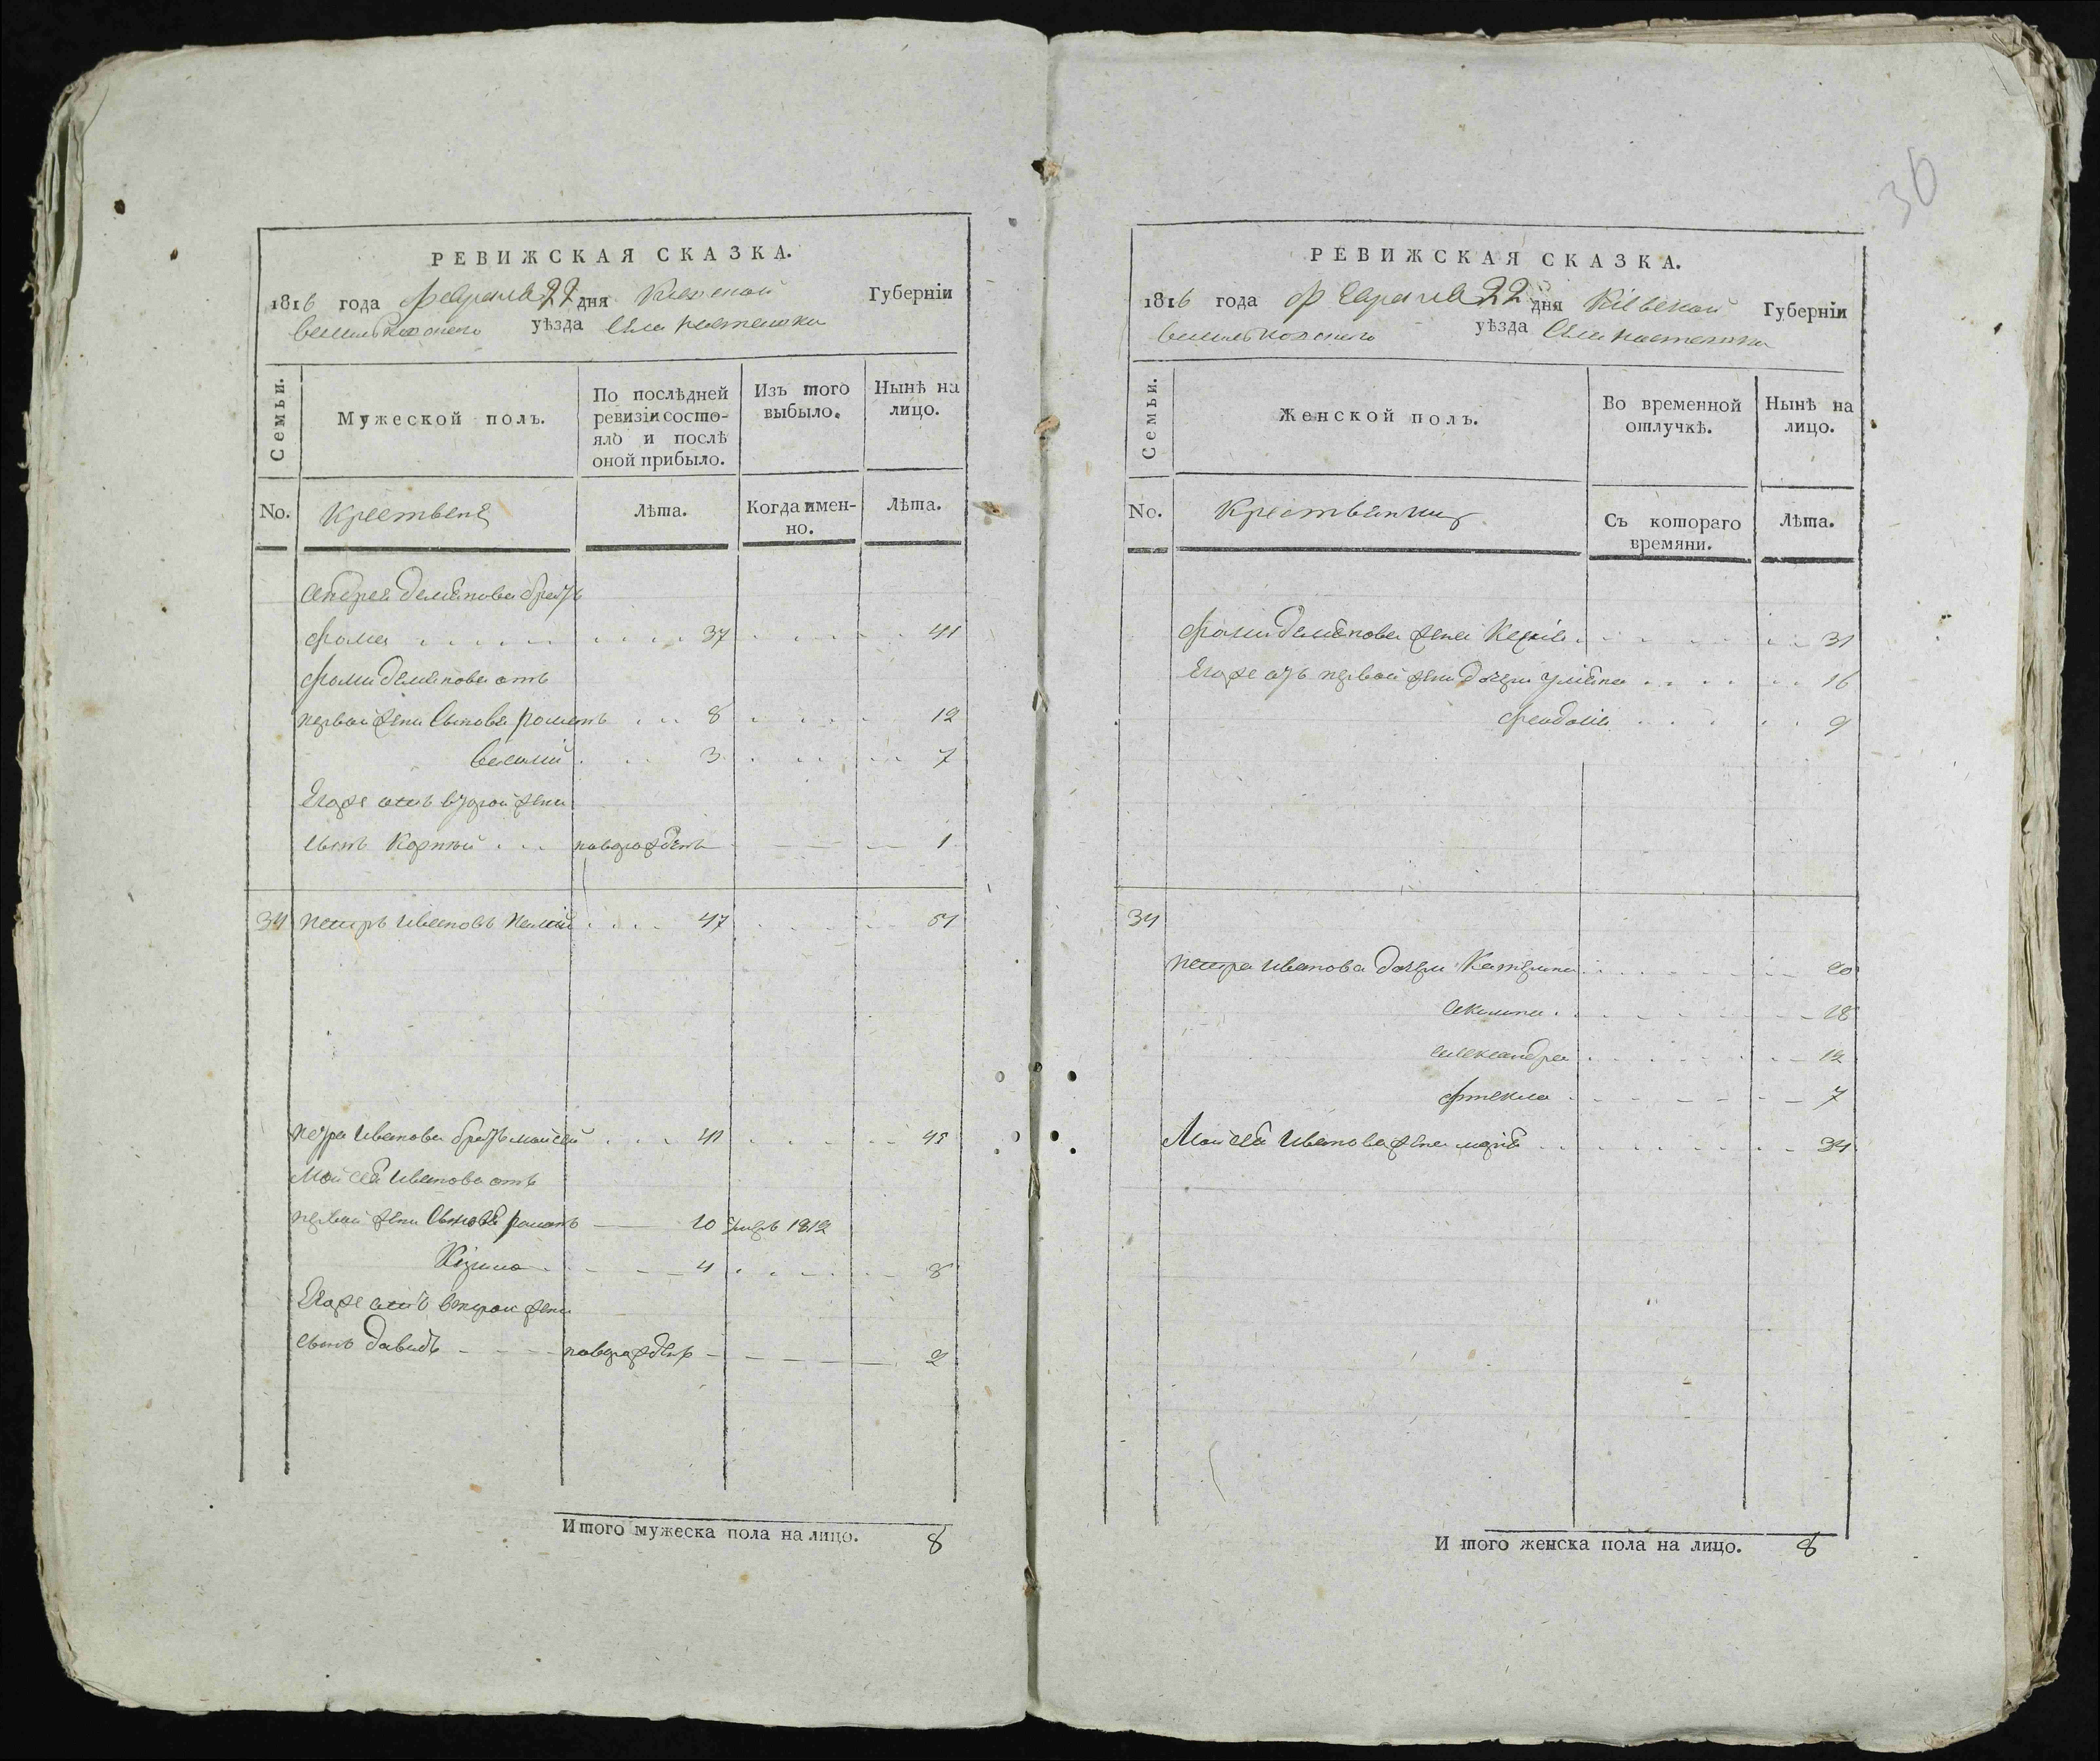 РЕВИЖСКАЯ СКАЗКА.
1816 года Февраля 22 дня Киевской Губерніи
Васильковскаго уѣзда Села
Семьи.
Мужеской полъ.
По послѣдней ревизіи состояло и послѣ оной прибыло.
Изъ того выбыло.
Нынѣ на лицо.
No.
Крестьяне
Лѣта.
Когда именно.
Лѣта.
Андрея Деміянова братъ
Фома 37 41
Фомы Деміянова отъ
первой жены Сыновя Романъ 8 12
Василій 3 7
Егоже отъ второй жены
сынъ Корній новорожденъ 1
34 Петръ Ивановъ 47 51
Петра Иванова братъ Мойсей 41 45
Мойсея Иванова отъ
первой жены Сыновя Романъ 10 умеръ 1812
Кузма 4 8
Егоже отъ второй жены
сынъ Давидъ новорожденъ 2
Итого мужеска пола на лицо. 8
36
РЕВИЖСКАЯ СКАЗКА.
1816 года Февраля 22 дня Кіевской Губерніи
Васильковскаго уѣзда Села
Семьи.
Женской полъ.
Во временной отлучкѣ.
Нынѣ на лицо.
No.
Крестьянки
Съ котораго времяни.
Лѣта.
Фомы Деміянова жена 31
Егоже отъ первой жены дочери Уліяна 16
Феодосія 9
34
Петра Иванова дочери Катерина 20
Акилина 18
Александра 12
Фтекла 7
Мойсея Иванова жена Марія 34
Итого женска пола на лицо. 8